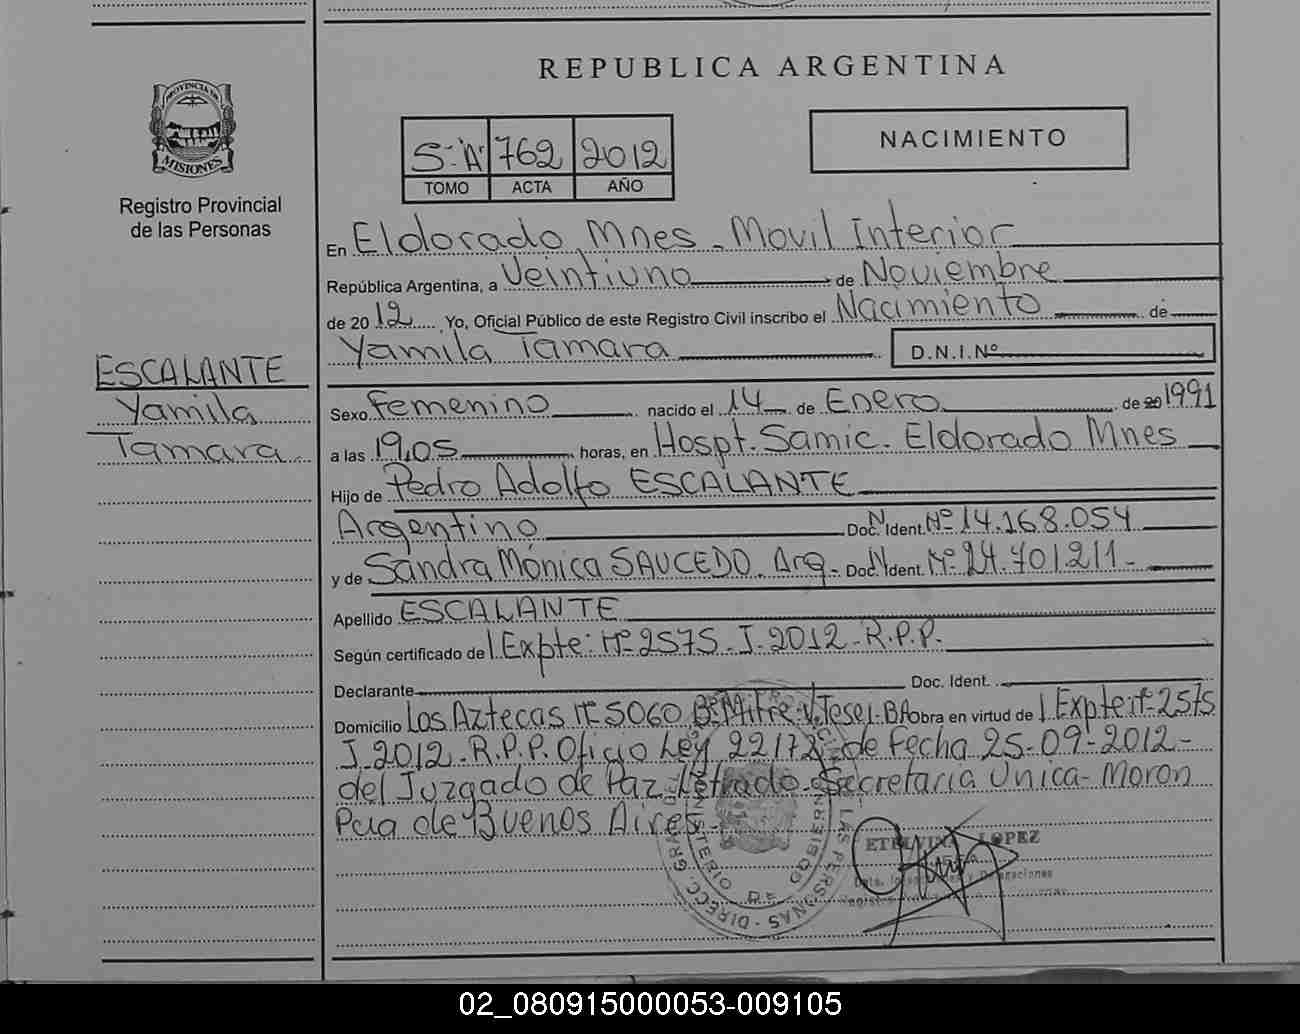 PROVINCIA DE
MISIONES
Registro Provincial
de las Personas
ESCALANTE
Yamila
Tamara.
REPUBLICA ARGENTINA
S."A" 762 2012
TOMO ACTA AÑO
NACIMIENTO
En Eldorado Mnes - Movil Interior
República Argentina, a Veintiuno de Noviembre
de 2012 Yo, Oficial Público de este Registro Civil inscribo el Nacimiento de
Yamila Tamara D.N.I.Nº
Sexo Femenino nacido el 14 de Enero de 20 1991
a las 19,05 horas, en Hospt. Samic. Eldorado Mnes
Hijo de Pedro Adolfo ESCALANTE
Argentino Doc. N. Ident. Nº 14.168.054
y de Sandra Mónica SAUCEDO. Arg. Doc. N. Ident. Nº 24.701211-
Apellido ESCALANTE
Según certificado de Expte: Nº 2575-J-2012-R.P.P.
Declarante Doc. Ident.
Domicilio Los Aztecas Nº 5060 Bº Mitre-V.Tesei-BA Obra en virtud de Expte nº 2575
J-2012-R.P.P. Oficio Ley 22172-de Fecha 25-09-2012-
del Juzgado de Paz Letrado-Secretaria Unica-Moron
Pcia de Buenos Aires
ETELVINA LOPEZ
DIRECC. GRAL. LAS PERSONAS
MINISTERIO DE GOBIERNO
02_080915000053-009105